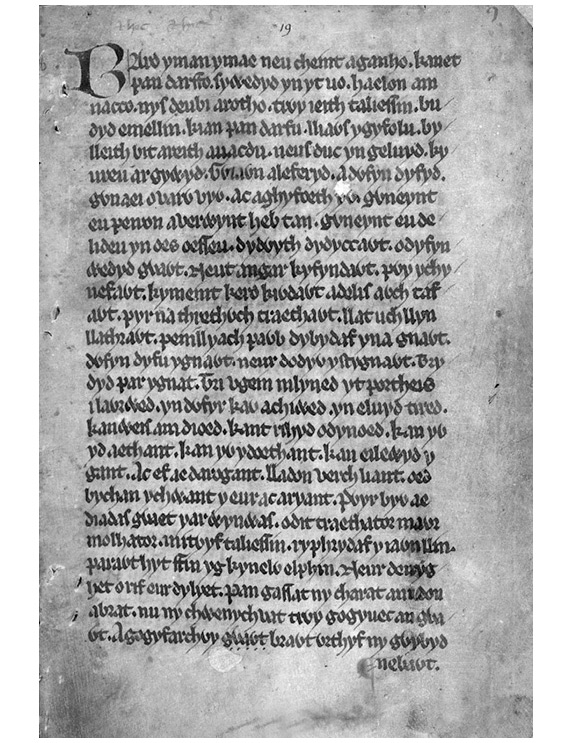 19
Bard yman ymae neu cheint aganho. kanet
pan darffo. sywedyd yn yt uo. haelon am
nacco. nys deubi arotho. trwy ieith taliessin. bu
dyd emellin. kian pan darfu. lliaws ygyfolu. by
lleith bit areith auacdu. neus duc yn geluyd. ky
ureu argywyd. Gwiaon aleferyd. adwfyn dyfyd.
gwnaei o varw vyw. ac aghyfoeth yw. gwneynt
eu peiron averwynt heb tan. gwneynt eu de
lideu yn oes oesseu. dydwyth dydyccawt. odyfyn
wedyd gwawt. Neut angar kyfyndawt. pwy ychy
nefawt. kymeint kerd kiwdawt adelis awch taf
awt. pyr na threthwch traethawt. llat uch llyn
llathrawt. penillyach pawb dybydaf yna gnawt.
dwfyn dyfu ygnawt. neur dodyw ystygnawt. Try
dyd par ygnat. Tri vgein mlyned yt portheis
ilawrwed. yn dwfyr kaw achiwed. yn eluyd tired.
kanweis am dioed. kant rihyd odynoed. kan yw
yd aethant. kan yw ydoethant. kan eilewyd y
gant. Ac ef ae darogant. lladon verch liant. oed
bychan ychwant y eur ac aryant. Pwyr byw ae
diadas gwaet yar wynwas. odit traethator mawr
molhator. mitwyf taliessin. ryphrydaf y iawn llin.
parawt hyt ffin yg kynelw elphin. Neur deiryg
het o rif eur dylyet. Pan gassat ny charat anudon
abrat. nu ny chwenychvat trwy gogyuec an gwa
wt. Agogyfarchwy gwawt brawt wrthyf ny gwybyd
nebawt.